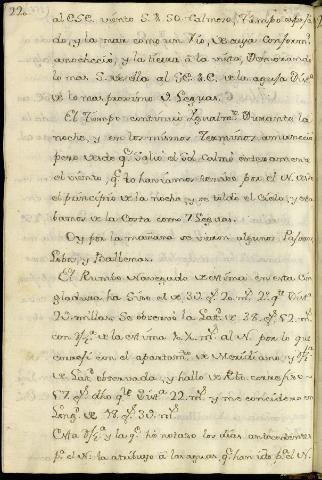 220
al ESE. viento S. á SO. calmoso, tiempo aposa
do, y la mar como un Rio, de cuya conform.
anochecio, y la tierra á la vista, Demorando
lo mas S. de ella al SE.¼E. de la aguja Dist.ª
de lo mas proximo 9 Leguas.
El Tiempo continuó igualm.te Durante la
noche, y en los mismos Terminos amanecio
pero desde q.e salio el Sol calmó enteramente
el viento, q.e lo haviamos tenido por el N. desde
el principio de la noche, y se toldó el Cielo, y esta
bamos de la Costa como 7 Leguas.
Oy por la mañana se vieron algunos Pajaros
Lobos, y Ballenas.
El Rumbo Navegado de estima en esta Cin
gladura ha sido el de 30. g.s 20. m.s 2.º q.te Dist.ª
20 millas. Se observó la Lat.d de 38. g.s 52. m.s
con Dif.ª de la estima m.s al N. por lo que
correji con el apartam.to de Meridiano, y Dif.ª
de Lat.d observada, y hallo de Rbo. correjido
57. g.s dho q.te Dist.ª 22. m.s y me considero en
Long.d de 18. g.s 30. m.s
Esta Dif.ª y la q.e he notado los dias antecedentes
p.r el N. la atribuyo á las aguas q.e han ido p.a el N.